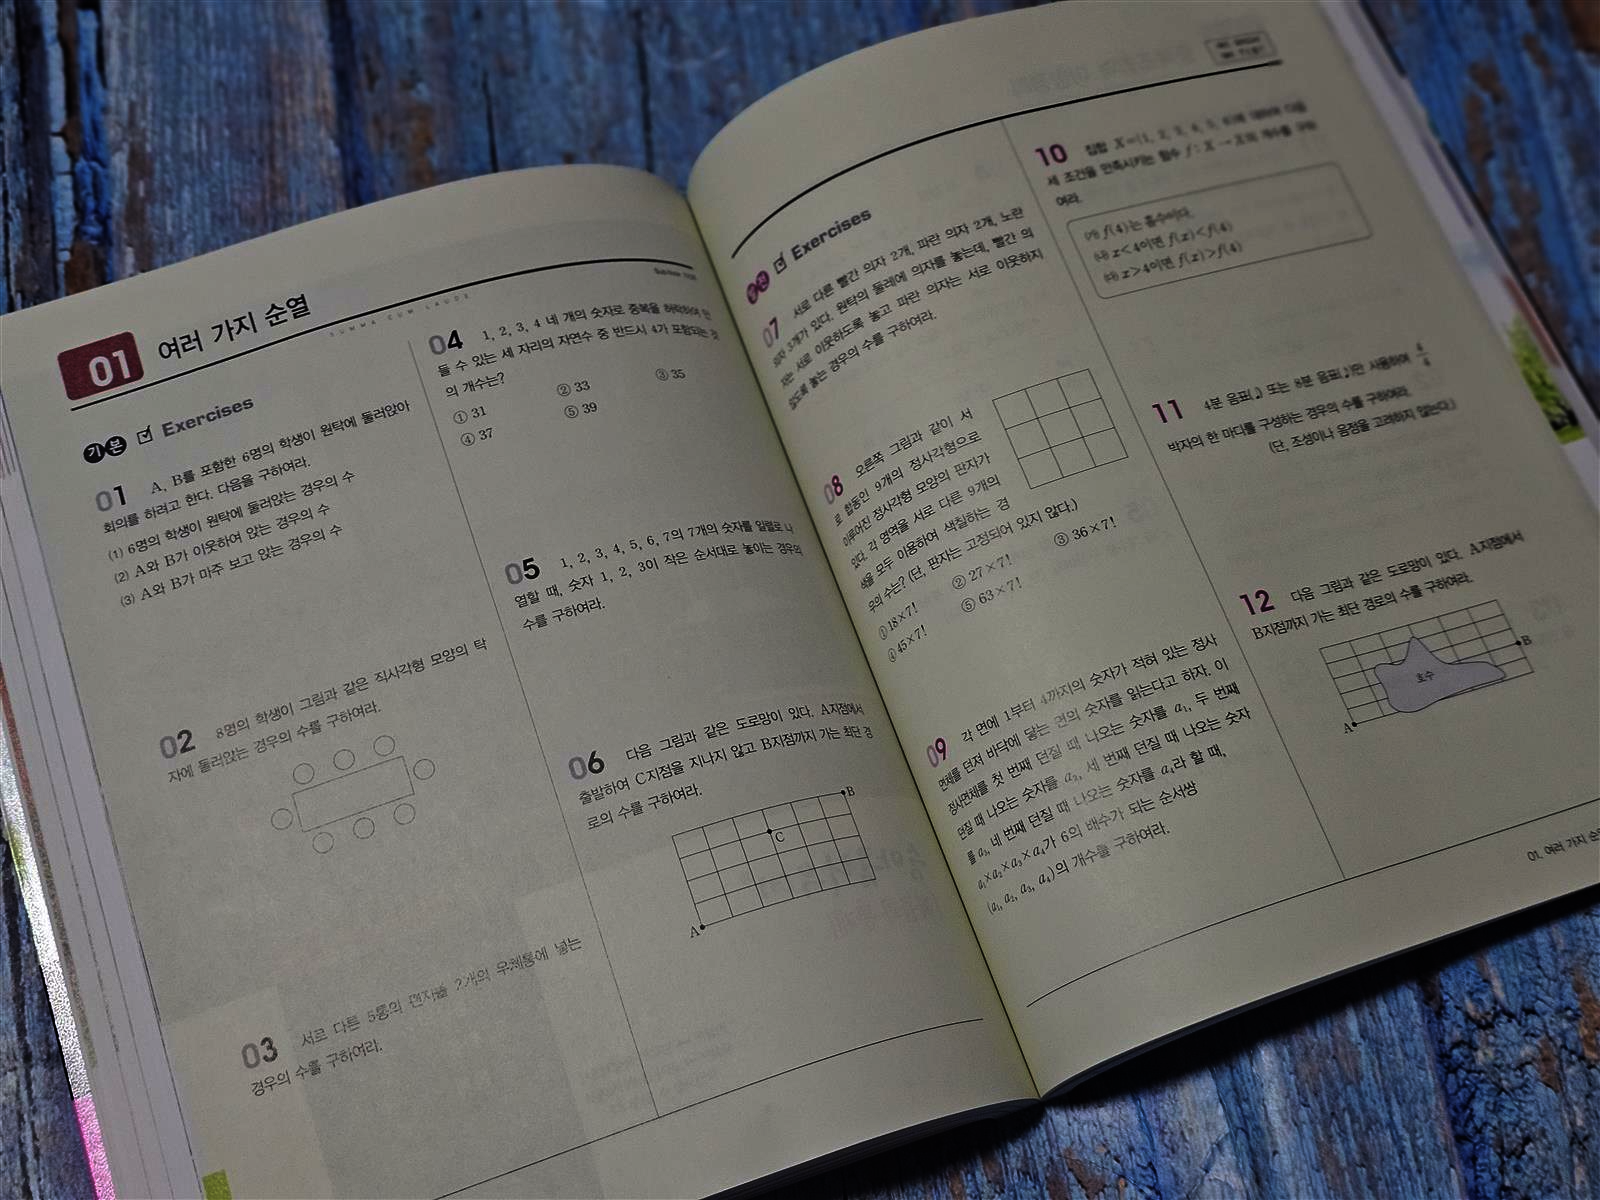 01 여러 가지 순열
SUMMA CUM LAUDE
기본 Exercises
01 A, B를 포함한 6명의 학생이 원탁에 둘러앉아
회의를 하려고 한다. 다음을 구하여라.
(1) 6명의 학생이 원탁에 둘러앉는 경우의 수
(2) A와 B가 이웃하여 앉는 경우의 수
(3) A와 B가 마주 보고 앉는 경우의 수
02 8명의 학생이 그림과 같은 직사각형 모양의 탁
자에 둘러앉는 경우의 수를 구하여라.
03 서로 다른 5통의 편지를 2개의 우체통에 넣는
경우의 수를 구하여라.
04 1, 2, 3, 4 네 개의 숫자로 중복을 허락하여 만
들 수 있는 세 자리의 자연수 중 반드시 4가 포함되는 것
의 개수는?
① 31 ② 33 ③ 35
④ 37 ⑤ 39
05 1, 2, 3, 4, 5, 6, 7의 7개의 숫자를 일렬로 나
열할 때, 숫자 1, 2, 3이 작은 순서대로 놓이는 경우의
수를 구하여라.
06 다음 그림과 같은 도로망이 있다. A지점에서
출발하여 C지점을 지나지 않고 B지점까지 가는 최단 경
로의 수를 구하여라.
B
C
A
발전 Exercises
07 서로 다른 빨간 의자 2개, 파란 의자 2개, 노란
의자 3개가 있다. 원탁의 둘레에 의자를 놓는데, 빨간 의
자는 서로 이웃하도록 놓고 파란 의자는 서로 이웃하지
않도록 놓는 경우의 수를 구하여라.
08 오른쪽 그림과 같이 서
로 합동인 9개의 정사각형으로
이루어진 정사각형 모양의 판자가
있다. 각 영역을 서로 다른 9개의
색을 모두 이용하여 색칠하는 경
우의 수는? (단, 판자는 고정되어 있지 않다.)
① 18×7! ② 27×7! ③ 36×7!
④ 45×7! ⑤ 63×7!
09 각 면에 1부터 4까지의 숫자가 적혀 있는 정사
면체를 던져 바닥에 닿는 면의 숫자를 읽는다고 하자. 이
정사면체를 첫 번째 던질 때 나오는 숫자를 a₁, 두 번째
던질 때 나오는 숫자를 a₂, 세 번째 던질 때 나오는 숫자
를 a₃, 네 번째 던질 때 나오는 숫자를 a₄라 할 때,
a₁×a₂×a₃×a₄가 6의 배수가 되는 순서쌍
(a₁, a₂, a₃, a₄)의 개수를 구하여라.
10 집합 X={1, 2, 3, 4, 5, 6}에 대하여 다음
세 조건을 만족시키는 함수 f : X → X의 개수를 구하
여라.
(가) f(4)는 홀수이다.
(나) x<4이면 f(x)<f(4)
(다) x>4이면 f(x)>f(4)
11 4분 음표(♩) 또는 8분 음표(♪)만 사용하여 4/4
박자의 한 마디를 구성하는 경우의 수를 구하여라.
(단, 조성이나 음정을 고려하지 않는다.)
12 다음 그림과 같은 도로망이 있다. A지점에서
B지점까지 가는 최단 경로의 수를 구하여라.
B
호수
A
01. 여러 가지 순열